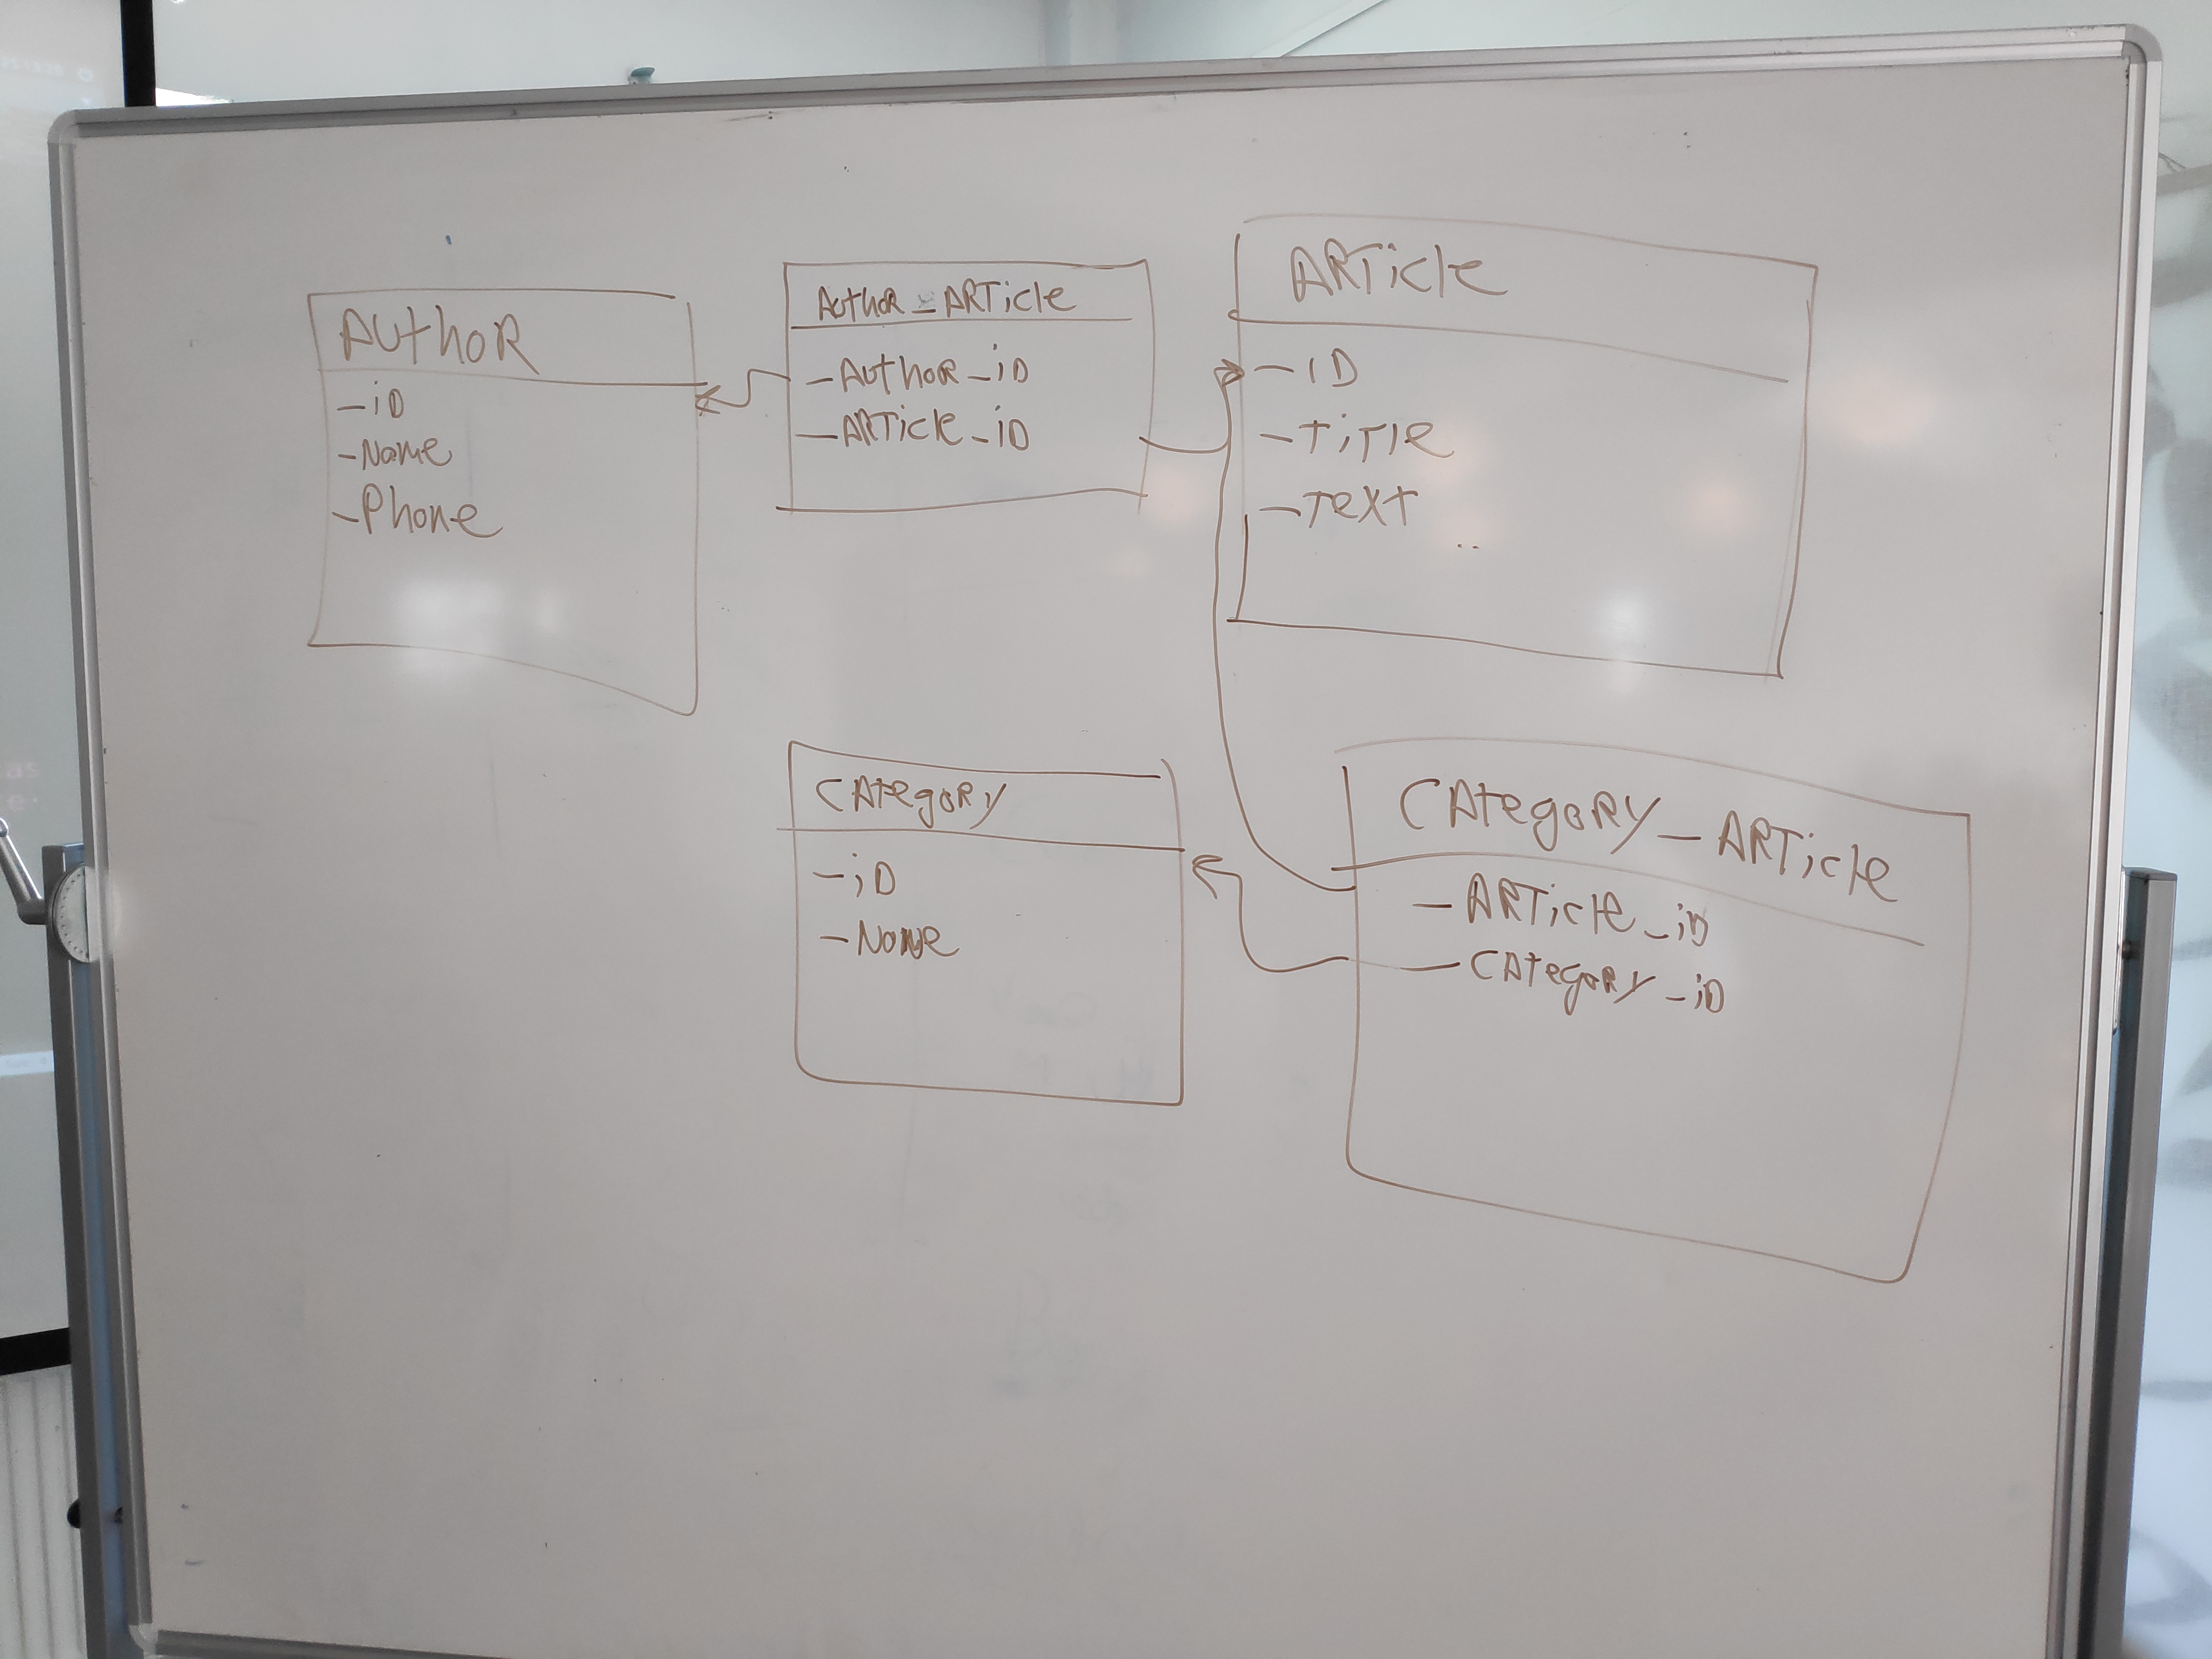 AUthoR
-iD
-Name
-Phone
AuthoR_ARTicle
-AuthoR_iD
-ARTicle_iD
ARTicle
-ID
-TiTle
-Text
..
CAtegoRy
-iD
-Name
CAtegoRy_ARTicle
-ARTicle_iD
-CAtegoRy_iD